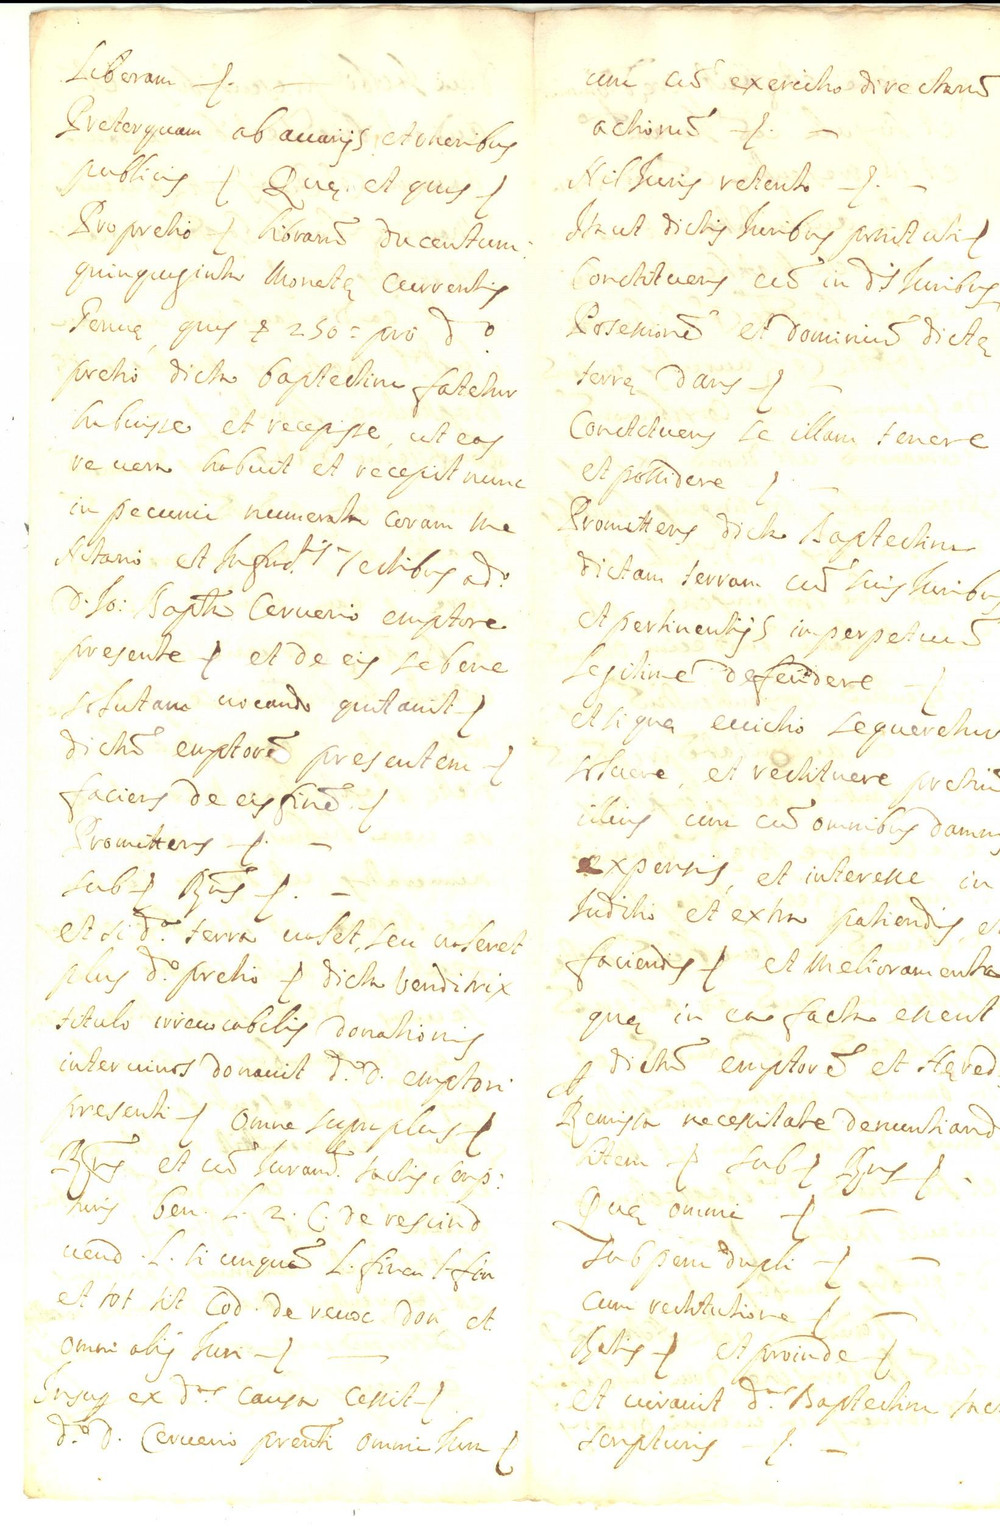 Liberam
Preterquam ab auarijs et oneribus
publicis Quę et quis
Pro pretio librarū ducentum
quinquaginta Monetę currentis
Genuę, quas £ 250: pro d.o
pretio dicta Baptestina fatetur
habuisse et recepisse, ut eas
re uera habuit et recepit nunc
in pecunia numerata coram me
Notario et testibus a d.o
D. Jo: Bapta Ceruerio emptore
presente et de eis se bene
solutam uocando quitauit
dictū emptorē presentem
faciens de eis finē
Promittens
sub
et si d.a terra ualet, seu ualeret
plus d.o pretio dicta Venditrix
titulo irreuocabilis donationis
inter uiuos donauit d.o D. emptori
presenti omne surplus
et cū Juram. tactis scrip:
turis ben. L. 2. C. de rescind
uend. L. si unquā L. fin
et tot tit Cod. de reuoc don, et
omni alij Juri
Insup ex d.a causa cessit
d.o D. Ceruerio omnia Jura
cum cū exercitio directarū
actionū
Nil Juris retento
Ita ut dictis Juribus
Constituens cū in ds Juribus
Posessionē et dominiū dictę
terrę Dans
Constituens se illam tenere
et possidere
Promittens dicta Baptestina
dictam terram cū suis Juribus
et pertinentijs in perpetuū
legitime defendere
et si qua euictio sequeretur
soluere, et restituere pretiū
illius una cū omnibus damnis
expensis, et interesse in
Juditio et extra patiendis, et
faciendis et Melioramenta
quę in ea facta essent
dictū emptorē et Hęred.
Remissa necessitate denuntiand
litem sub
Quę omnia
Sub pena dupli
Cum restitutione
Ratis et proinde
et iurauit d.a Baptestina tac
scripturis